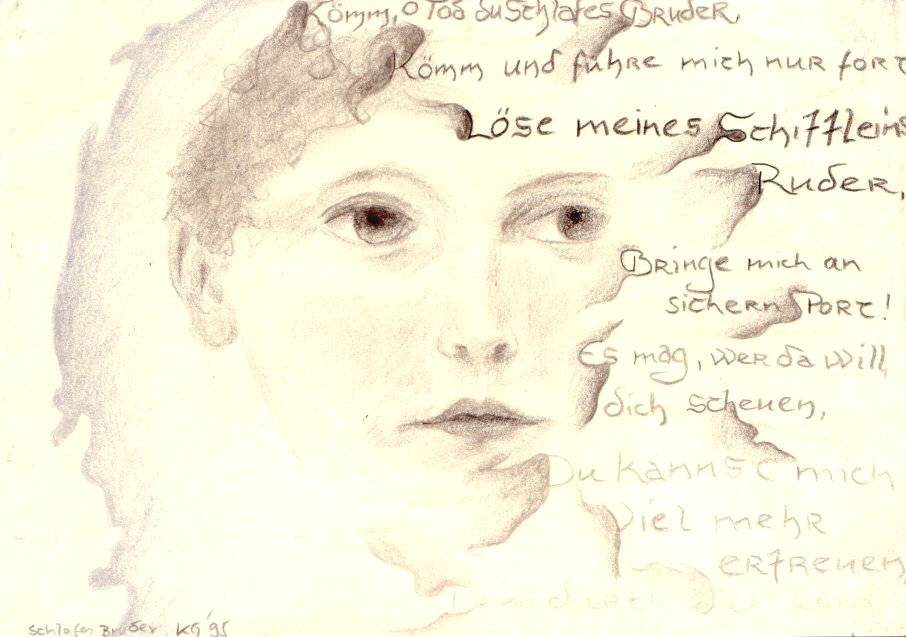 Kömm, o Tod du Schlafes Bruder,
Kömm und führe mich nur fort
Löse meines Schiffleins
Ruder,
Bringe mich an
sichern Port!
Es mag, wer da will,
dich scheuen,
Du kannst mich
Viel mehr
erfreuen,
Denn durch dich komm
Schlafes Bruder KG '95